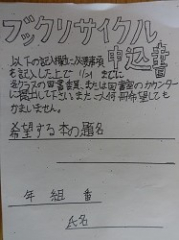 ブックリサイクル
申込書
以下の記入欄に必要事項
を記入した上で 1/21 までに
各クラスの図書委員、または図書室のカウンター
に提出して下さい。また一人何冊希望しても
かまいません。
希望する本の題名
年 組 番
氏名